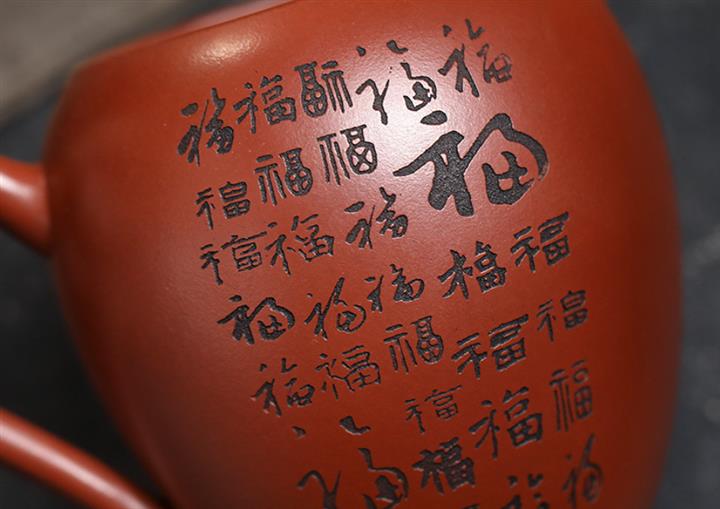 福福福福福
福福福福
福福福
福福福福福
福福福福福
福福福
福福
福福